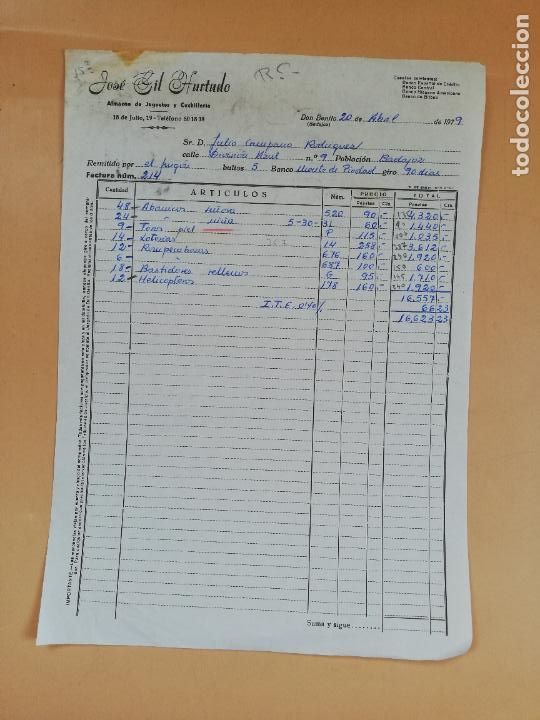 José Gil Hurtado
Almacén de Juguetes y Cuchillería
18 de Julio, 19 - Teléfono 80 18 38
Cuentas corrientes:
Banco Español de Crédito
Banco Central
Banco Hispano Americano
Banco de Bilbao
Don Benito 20 de Abril de 1979
(Badajoz)
Sr. D. Julio Campano Rodríguez
calle n.º 9 Población Badajoz
Remitido por el bultos 5 Banco Monte de Piedad giro 90 días
Factura núm. 214
Cantidad ARTICULOS Núm. PRECIO TOTAL
Pesetas Cts Pesetas Cts
48 - Abanicos señora 520 90,- 4.320,-
24 - " niña 5-30-31 60,- 1.440,-
9 - Toros piel P 115,- 1.035,-
14 - Loterías 14 258,- 3.612,-
12 - Rompecabezas 676 160,- 1.920,-
6 - " 687 100,- 600,-
18 - Bastidores rellenos C 95,- 1.710,-
12 - Helicópteros 178 160,- 1.920,-
16.557,-
I.T.E. 0'40% 66 23
16,623 23
Suma y sigue
todocoleccion